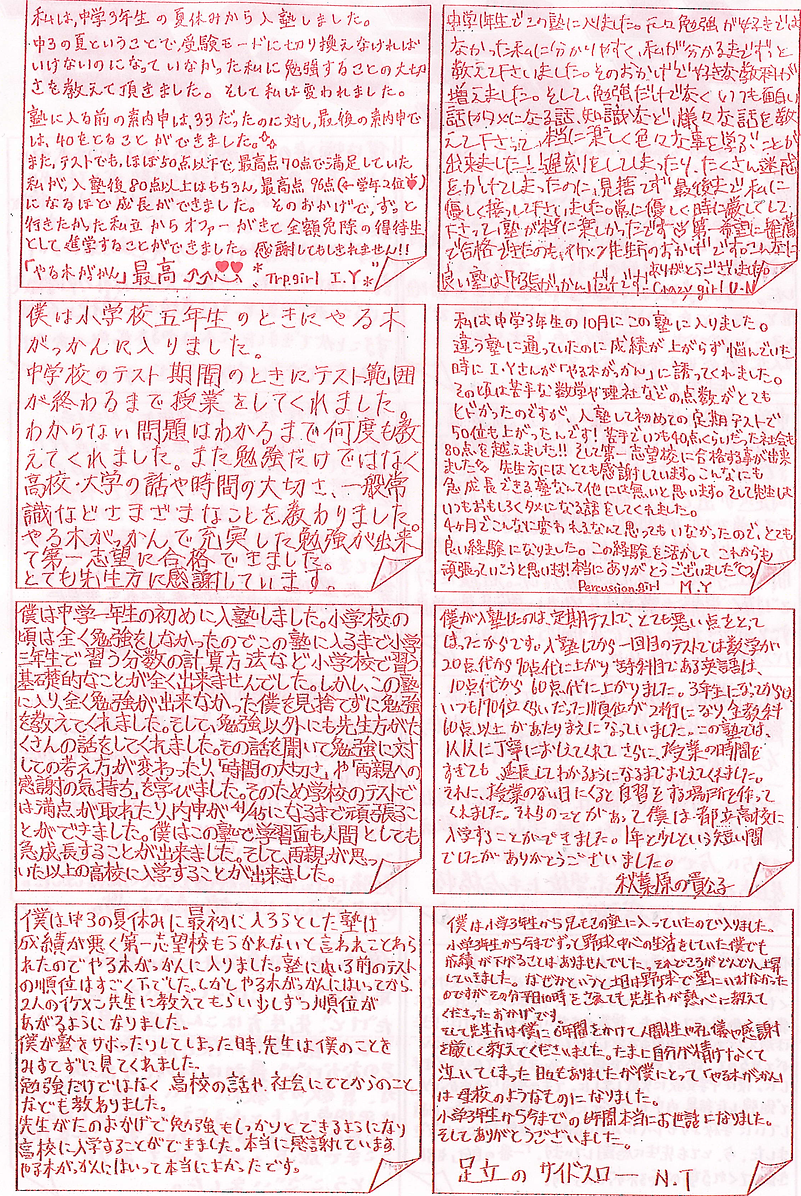 私は、中学3年生の夏休みから入塾しました。
中3の夏ということで、受験モードに切り換えなければ
いけないのになっていなかった私に勉強することの大切
さを教えて頂きました。そして私は変われました。
塾に入る前の素内申は、33だったのに対し、最後の素内申で
は、40をとることができました。
また、テストでも、ほぼ50点以下で、最高点70点で満足していた
私が、入塾後80点以上はもちろん、最高点96点(←学年2位♥)
になるほど成長ができました。そのおかげで、ずっと
行きたかった私立からオファーがきて全額免除の得待生
として進学することができました。感謝してもしきれません!!
「やる木がっかん」最高 ♥♥ "Trp.girl I.Y"
中学1年生でこの塾に入りました。元々勉強が好きでは
なかった私に分かりやすく、私が分かるまでずっと
教えて下さいました。そのおかげで好きな教科が
増えました。そして、勉強だけでなくいつも面白い
話やタメになる話、知識など、様々な話を教
えて下さって、本当に楽しく色々な事を学ぶことが
出来ました!!遅刻をしてしまったり、たくさん迷惑
をかけてしまったのに、見捨てず最後まで私に
優しく接して下さいました。常に優しく時に厳しくして
下さって、塾が本当に楽しかったです。第一希望に推薦
で合格できたのも、イケメン先生方のおかげです。こんなに
良い塾は「やる気がっかん」だけです!ありがとうございました。
Crazy girl U.N
僕は小学校五年生のときにやる木
がっかんに入りました。
中学校のテスト期間のときにテスト範囲
が終わるまで授業をしてくれました。
わからない問題はわかるまで何度も教
えてくれました。また勉強だけではなく
高校・大学の話や時間の大切さ、一般常
識などさまざまなことを教わりました。
やる木がっかんで充実した勉強が出来
て第一志望に合格できました。
とても先生方に感謝しています。
私は中学3年生の10月にこの塾に入りました。
違う塾に通っていたのに成績が上がらず悩んでいた
時にI.Yさんが「やる木がっかん」に誘ってくれました。
その頃は苦手な数学や理社などの点数がとても
ヒドかったのですが、入塾して初めての定期テストで
50位も上がったんです!苦手でいつも40点くらいだった社会も
80点を越えました!!そして第一志望校に合格する事が出来
ました。先生方にはとても感謝しています。こんなにも
急成長できる塾なんて他には無いと思います。そして先生は
いつもおもしろくタメになる話をしてくれました。
4ヶ月でこんなに変われるなんて思ってもいなかったので、とても
良い経験になりました。この経験を活かしてこれからも
頑張っていこうと思います!本当にありがとうございました。
Percussion.girl M.Y
僕は中学一年生の初めに入塾しました。小学校の
頃は全く勉強をしなかったのでこの塾に入るまで小学
三年生で習う分数の計算方法など小学校で習う
基礎的なことが全く出来ませんでした。しかし、この塾
に入り、全く勉強が出来なかった僕を見捨てずに勉強
を教えてくれました。そして、勉強以外にも先生方がた
くさんの話をしてくれました。その話を聞いて勉強に対
しての考え方が変わったり、「時間の大切さ」や「両親への
感謝の気持ち」を学びました。そのため学校のテストで
は満点が取れたり、内申が41/45になるまで頑張るこ
とができました。僕はこの塾で学習面も人間としても
急成長することが出来ました。そして、両親が思って
いた以上の高校に入学することが出来ました。
僕が入塾したのは、定期テストで、とても悪い点をとって
しまったからです。入塾してから一回目のテストでは数学が
20点代から90点代に上がり苦手科目である英語は、
10点代から60点代に上がりました。3年生になってからは、
いつも170位くらいだった順位が2桁になり全教科
60点以上があたりまえになっていました。この塾では、
1人1人に丁寧におしえてくれてさらに、授業の時間を
すぎても、延長してわかるようになるまでおしえてくれました。
それに、授業のない日にくると自習をする場所を作って
くれました。それらのことがあって僕は、都立高校に
入学することができました。1年と少しという短い間
でしたがありがとうございました。
秋葉原の貴公子
僕は中3の夏休みに最初に入ろうとした塾は
成績が悪く第一志望校もうかれないと言われことわら
れたのでやる木がっかんに入りました。塾にはいる前のテスト
の順位はすごく下でした。しかしやる木がっかんにはいってから、
2人のイケメン先生に教えてもらい少しずつ順位が
あがるようになりました。
僕が塾をサボったりしてしまった時、先生は僕のことを
みすてずに見てくれました。
勉強だけではなく、高校の話や、社会にでてからのこと
なども教わりました。
先生がたのおかげで勉強もしっかりとできるようになり
高校に入学することができました。本当に感謝しています。
やる木がっかんにはいって本当によかったです。
僕は小学3年生から兄もこの塾に入っていたので入りました。
小学3年生から今までずっと野球中心の生活をしていた僕でも
成績が下がることはありませんでした。それどころかどんどん上昇
していきました。なぜかというと土日は野球で塾にいけなかった
のですがその分平日10時をこえても先生方が熱心に教えて
くださったおかげです。
そして先生方は僕に6年間をかけて人間性や礼儀や感謝
を厳しく教えてくださいました。たまに自分が情けなくて
泣いてしまった日もありましたが僕にとって「やる木がっかん」
は母校のようなものになりました。
小学3年生から今までの6年間本当にお世話になりました。
そしてありがとうございました。
足立のサイドスロー N.T